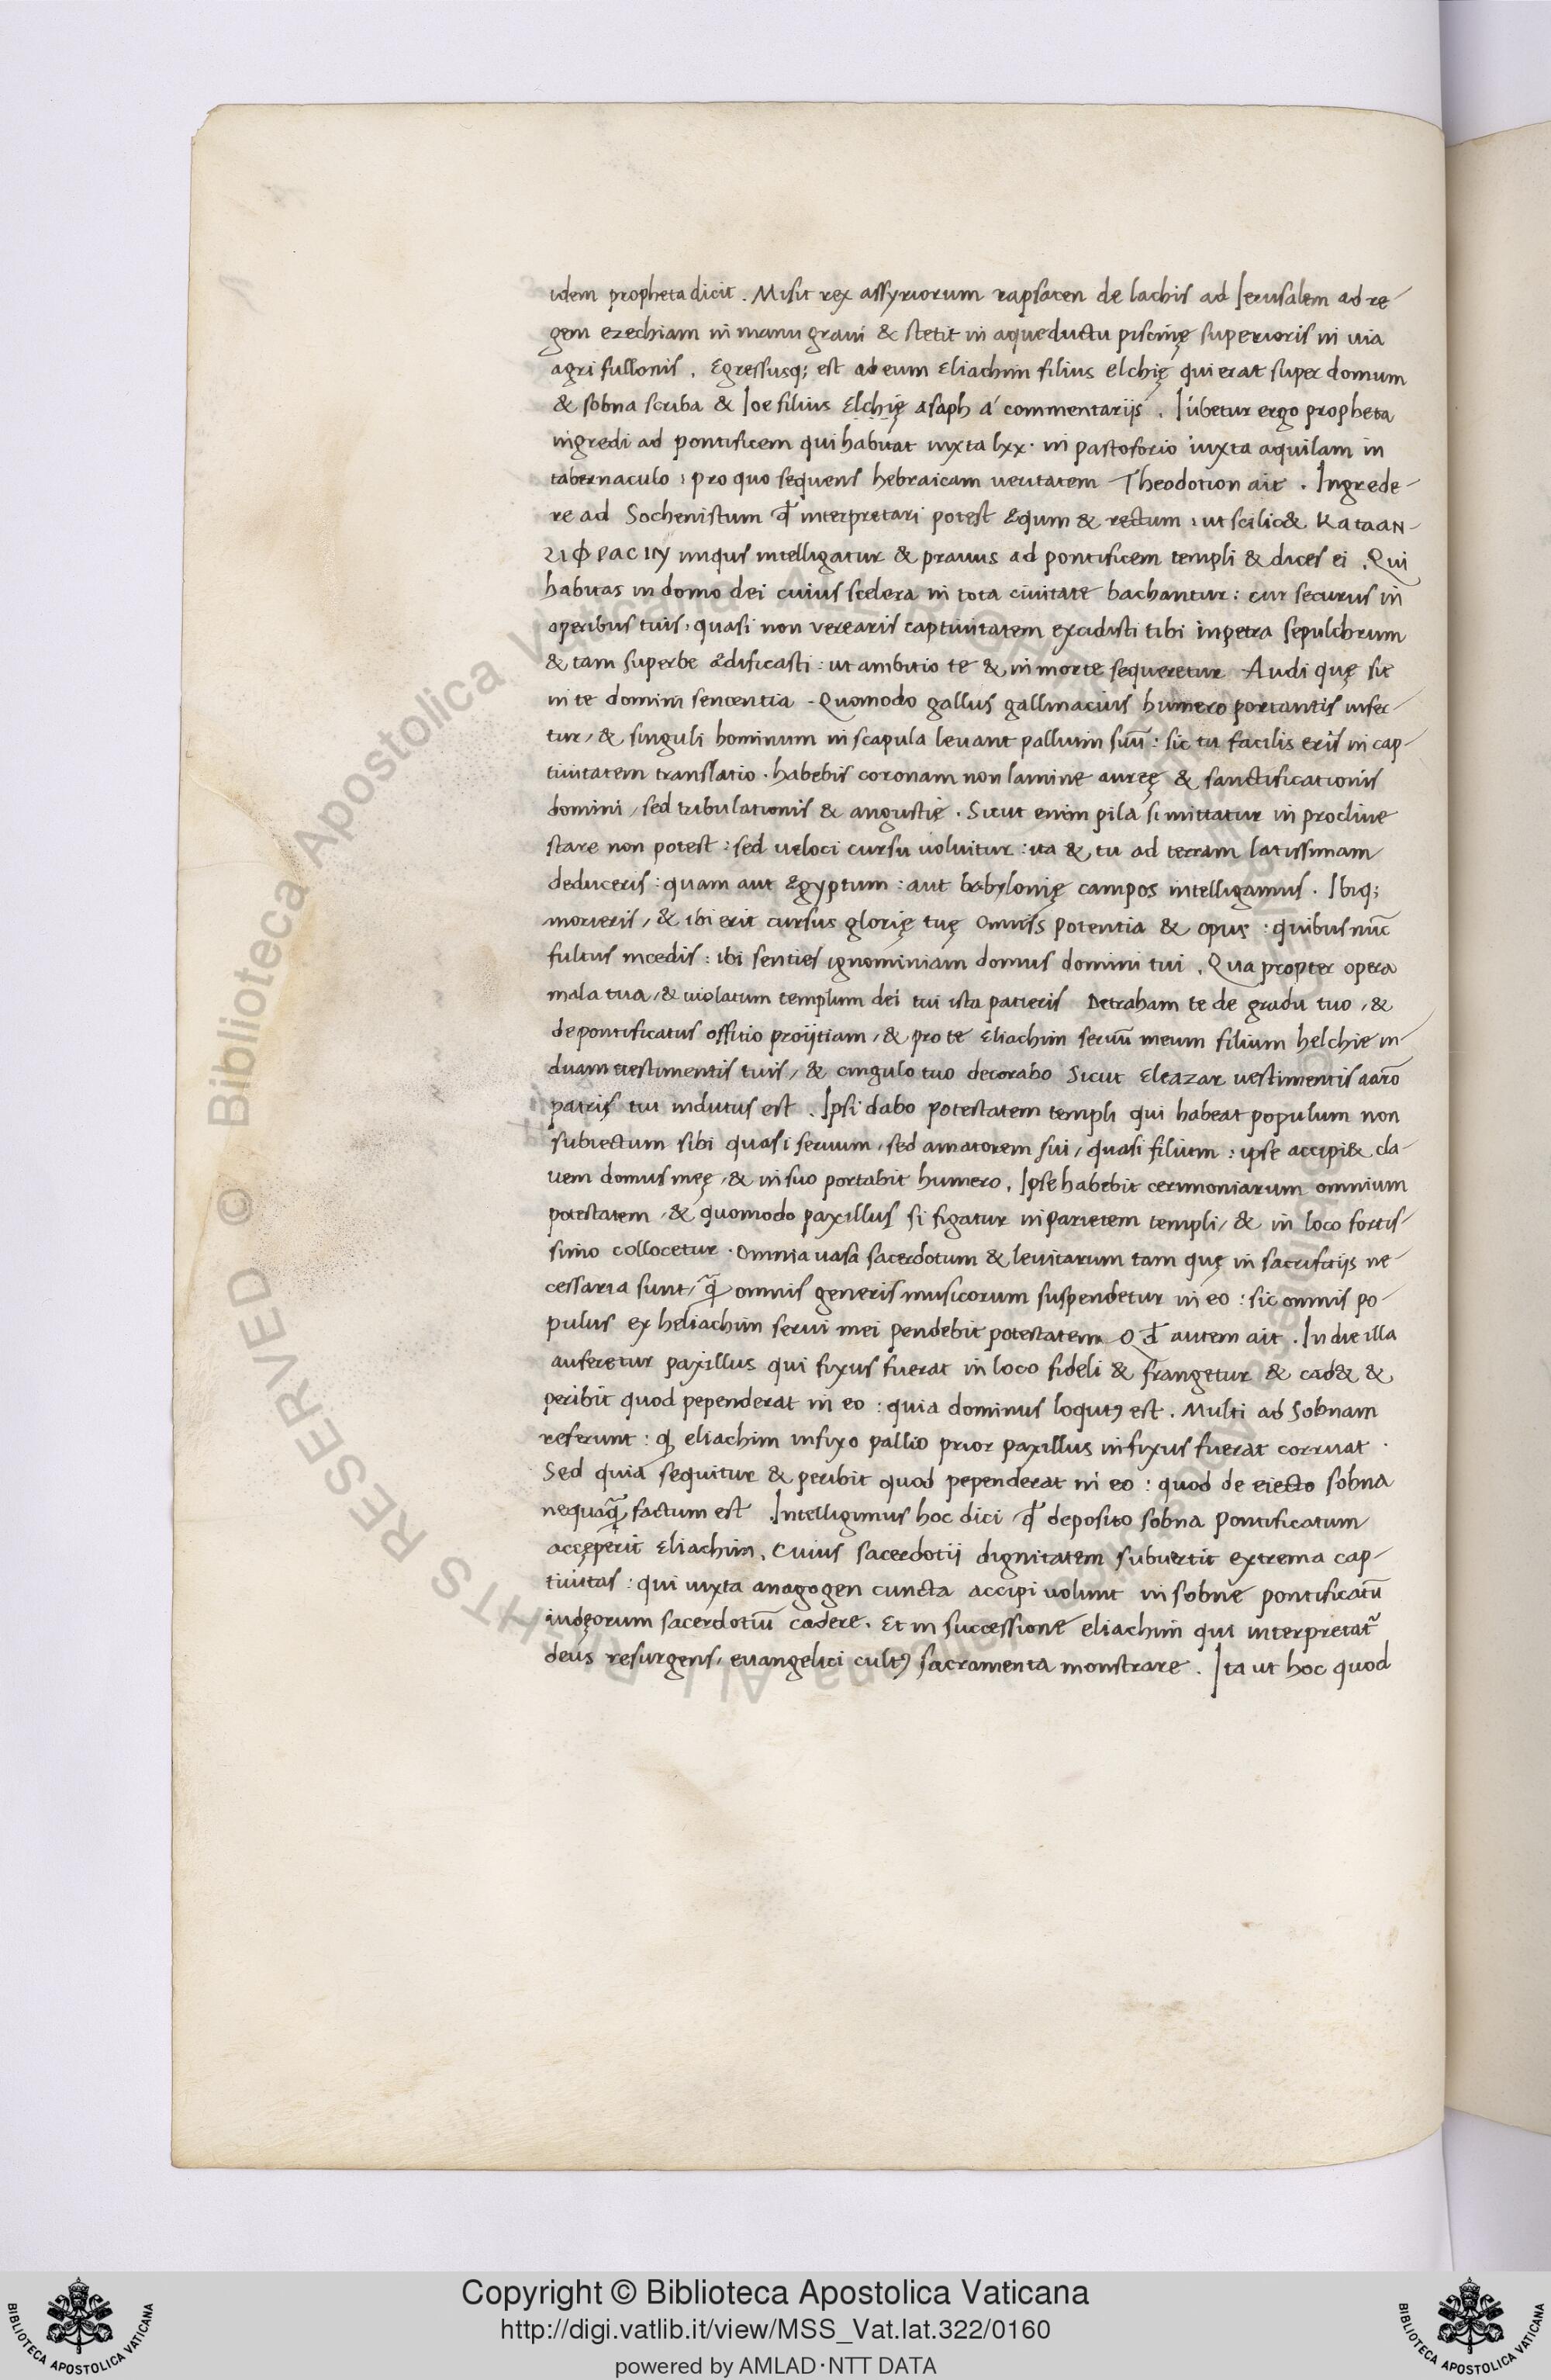 idem propheta dicit . Misit rex assyriorum rapsacen de lachis ad Ierusalem ad re-
gem ezechiam in manu graui & stetit in aqueductu piscinę superioris in uia
agri fullonis . Egressusq; est ad eum Eliachim filius elchię qui erat super domum
& sobna scriba & Ioe filius Elchię asaph á commentarijs . Iubetur ergo propheta
ingredi ad pontificem qui habitat iuxta lxx · in pastoforio iuxta aquilam in
tabernaculo : pro quo sequens hebraicam ueritatem Theodotion ait . Ingrede-
re ad Sochenistum qđ interpretari potest Æqum & rectum : ut scilic& KataaN-
ΖΙΦΡΑCΙΝ iniqus intelligatur & prauus ad pontificem templi & dices ei . Qui
habitas in domo dei cuius scelera in tota ciuitate bachantur : cur securus in
operibus tuis : quasi non verearis captiuitatem excidisti tibi in petra sepulchrum
& tam superbe ædificasti : ut ambitio te & in morte sequeretur Audi quę sit
in te domini sententia . Quomodo gallus gallinacius humero portantis infer-
tur / & singuli hominum in scapula leuant pallium suū : sic tu facilis eris in cap-
tiuitatem translatio . habebis coronam non lamine aureę & sanctificationis
domini / sed tribulationis & angustię . Sicut enim pila si mittatur in procliue
stare non potest : sed ueloci cursu uoluitur : ita & tu ad terram latissimam
deduceris : quam aut Ægyptum : aut babylonię campos intelligamus . Ibiq;
morieris / & ibi erit cursus glorię tuę omnis potentia & opus : quibus nūc
fultus incedis : ibi senties ignominiam domus domini tui . Qua propter opera
mala tua / & uiolatum templum dei tui ista patieris Detraham te de gradu tuo / &
de pontificatus offitio proijtiam / & pro te Eliachim seruū meum filium helchie in-
duam uestimentis tuis / & cingulo tuo decorabo Sicut Eleazar uestimentis aarō
patris tui indutus est . Ipsi dabo potestatem templi qui habeat populum non
subiectum sibi quasi seruum / sed amatorem sui / quasi filium : ipse accipi& cla-
uem domus męę / & in suo portabit humero . Ipse habebit cerimoniarum omnium
potestatem / & quomodo paxillus si figatur in parietem templi / & in loco fortis-
simo collocetur . Omnia uasa sacerdotum & leuitarum tam quę in sacrifitijs ne-
cessaria sunt / q̄ omnis generis musicorum suspendetur in eo : sic omnis po-
pulus ex heliachim serui mei pendebit potestatem Qđ autem ait . In die illa
auferetur paxillus qui fixus fuerat in loco fideli & frangetur & cad& &
peribit quod pependerat in eo : quia dominus loqutꝰ est . Multi ad Sobnam
referunt : ꝙ eliachim infixo pallio prior paxillus infixus fuerat corruat .
Sed quia sequitur & peribit quod pependerat in eo : quod de eiecto sobna
nequaq̄ factum est Intelligimus hoc dici qđ deposito sobna pontificatum
accęperit Eliachim . Cuius sacerdotij dignitatem subuertit extrema cap-
tiuitas : qui iuxta anagogen cuncta accipi uolunt in sobne pontificatū
iudęorum sacerdotiū cadere . Et in successione eliachim qui interpretat̃
deus resurgens / euangelici cultꝰ sacramenta monstrare . Ita ut hoc quod
Biblioteca Apostolica Vaticana ALL RIGHTS RESERVED ©
Copyright © Biblioteca Apostolica Vaticana
http://digi.vatlib.it/view/MSS_Vat.lat.322/0160
powered by AMLAD·NTT DATA
BIBLIOTECA APOSTOLICA VATICANA
BIBLIOTECA APOSTOLICA VATICANA